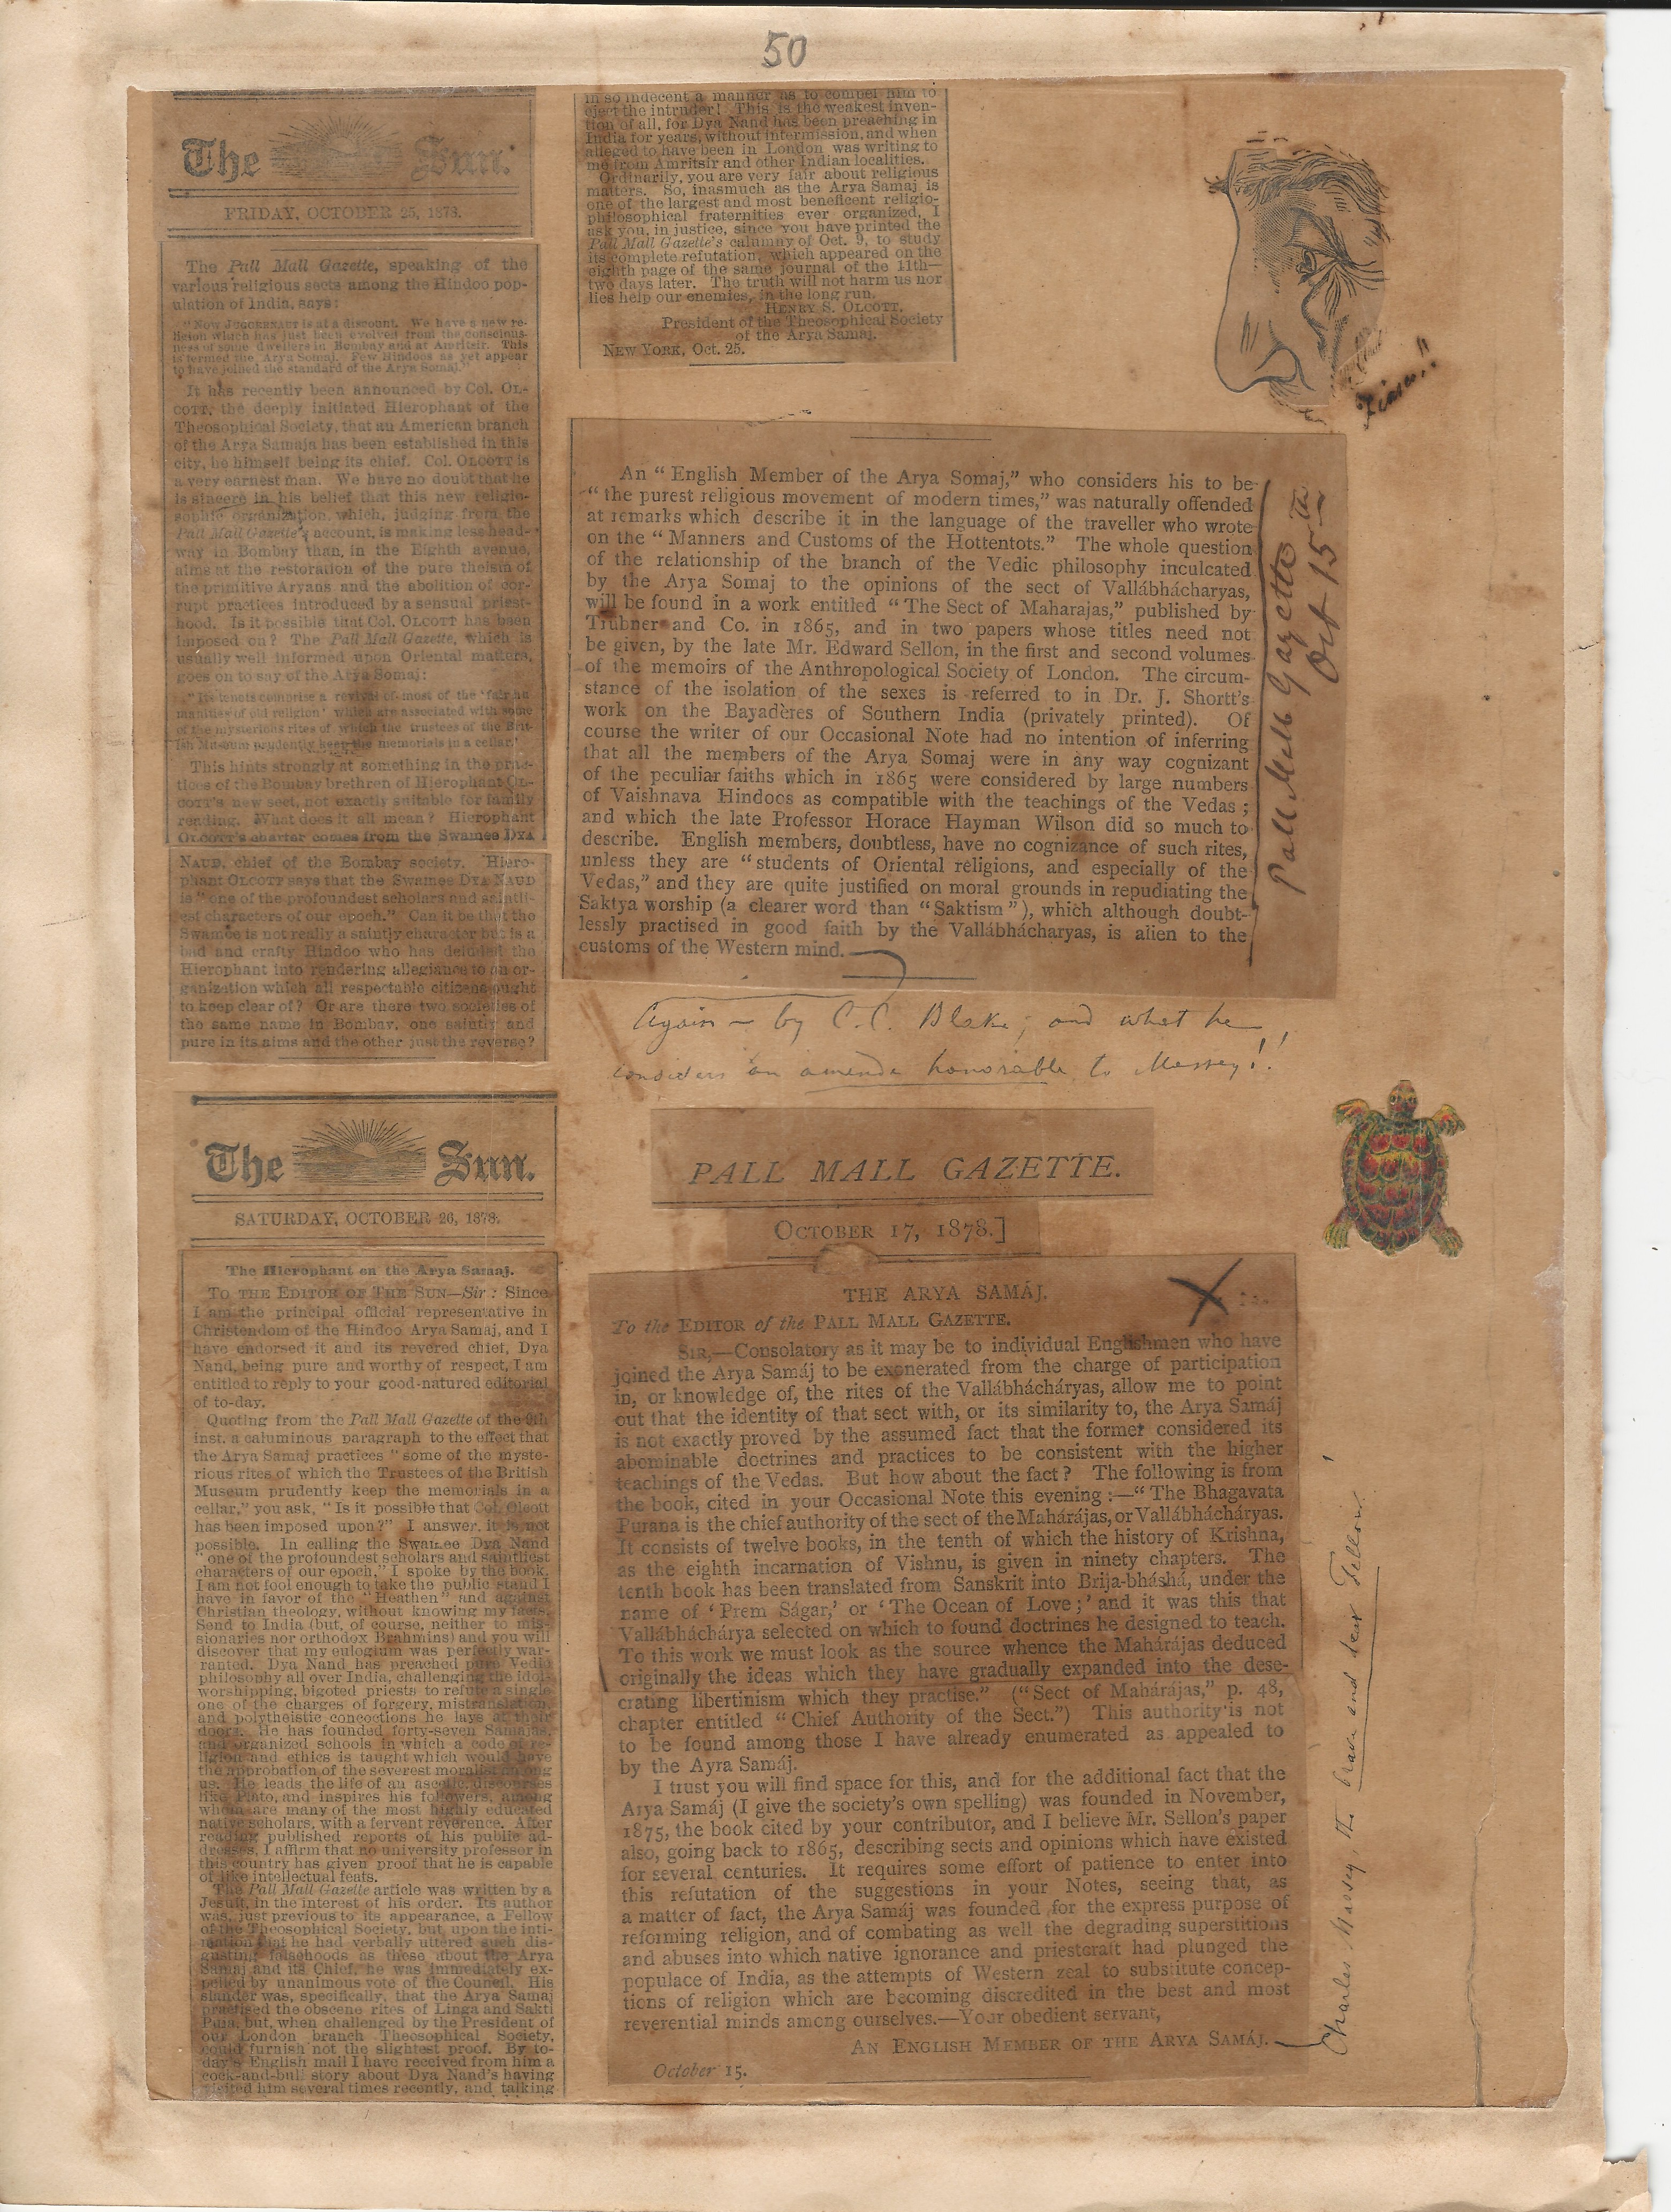 50
The Sun.
FRIDAY, OCTOBER 25, 1878.
The Pall Mall Gazette, speaking of the
various religious sects among the Hindoo pop-
ulation of India, says:
"Now JUGGERNAUT is at a discount. We have a new re-
ligion which has just been evolved from the conscious-
ness of some dwellers in Bombay and at Amritsir. This
is termed the Arya Somaj. Few Hindoos as yet appear
to have joined the standard of the Arya Somaj."
It has recently been announced by Col. OL-
COTT, the deeply initiated Hierophant of the
Theosophical Society, that an American branch
of the Arya Samaja has been established in this
city, he himself being its chief. Col. OLCOTT is
a very earnest man. We have no doubt that he
is sincere in his belief that this new religio-
sophic organization, which, judging from the
Pall Mall Gazette's account, is making less head-
way in Bombay than in the Eighth avenue,
aims at the restoration of the pure theism of
the primitive Aryans and the abolition of cor-
rupt practices introduced by a sensual priest-
hood. Is it possible that Col. OLCOTT has been
imposed on? The Pall Mall Gazette, which is
usually well informed upon Oriental matters,
goes on to say of the Arya Somaj:
"Its tenets comprise a revival of most of the 'fair hu-
manities of old religion' which are associated with some
of the mysterious rites of which the trustees of the Brit-
ish Museum prudently keep the memorials in a cellar."
This hints strongly at something in the prac-
tices of the Bombay brethren of Hierophant OL-
COTT'S new sect, not exactly suitable for family
reading. What does it all mean? Hierophant
OLCOTT'S charter comes from the Swamee DYA
NAUD, chief of the Bombay society. Hiero-
phant OLCOTT says that the Swamee DYA NAUD
is "one of the profoundest scholars and saintli-
est characters of our epoch." Can it be that the
Swamee is not really a saintly character but is a
bad and crafty Hindoo who has deluded the
Hierophant into rendering allegiance to an or-
ganization which all respectable citizens ought
to keep clear of? Or are there two societies of
the same name in Bombay, one saintly and
pure in its aims and the other just the reverse?
The Sun.
SATURDAY, OCTOBER 26, 1878.
The Hierophant on the Arya Samaj.
TO THE EDITOR OF THE SUN—Sir: Since
I am the principal official representative in
Christendom of the Hindoo Arya Samaj, and I
have endorsed it and its revered chief, Dya
Nand, being pure and worthy of respect, I am
entitled to reply to your good-natured editorial
of to-day.
Quoting from the Pall Mall Gazette of the 9th
inst. a caluminous paragraph to the effect that
the Arya Samaj practices "some of the myste-
rious rites of which the Trustees of the British
Museum prudently keep the memorials in a
cellar," you ask, "Is it possible that Col. Olcott
has been imposed upon?" I answer, it is not
possible. In calling the Swamee Dya Nand
"one of the profoundest scholars and saintliest
characters of our epoch," I spoke by the book.
I am not fool enough to take the public stand I
have in favor of the "Heathen" and against
Christian theology, without knowing my facts.
Send to India (but, of course, neither to mis-
sionaries nor orthodox Brahmins) and you will
discover that my eulogium was perfectly war-
ranted. Dya Nand has preached pure Vedic
philosophy all over India, challenging the idol-
worshipping, bigoted priests to refute a single
one of the charges of forgery, mistranslation,
and polytheistic concoctions he lays at their
doors. He has founded forty-seven Samajas,
and organized schools in which a code of re-
ligion and ethics is taught which would have
the approbation of the severest moralist among
us. He leads the life of an ascetic, discourses
like Plato, and inspires his followers, among
whom are many of the most highly educated
native scholars, with a fervent reverence. After
reading published reports of his public ad-
dresses, I affirm that no university professor in
this country has given proof that he is capable
of like intellectual feats.
The Pall Mall Gazette article was written by a
Jesuit, in the interest of his order. Its author
was, just previous to its appearance, a Fellow
of the Theosophical Society, but upon the inti-
mation that he had verbally uttered such dis-
gusting falsehoods as these about the Arya
Samaj and its Chief, he was immediately ex-
pelled by unanimous vote of the Council. His
slander was, specifically, that the Arya Samaj
practised the obscene rites of Linga and Sakti
Puja, but, when challenged by the President of
our London branch Theosophical Society,
could furnish not the slightest proof. By to-
day's English mail I have received from him a
cock-and-bull story about Dya Nand's having
visited him several times recently, and talking
in so indecent a manner as to compel him to
eject the intruder! This is the weakest inven-
tion of all, for Dya Nand has been preaching in
India for years, without intermission, and when
alleged to have been in London was writing to
me from Amritsir and other Indian localities.
Ordinarily, you are very fair about religious
matters. So, inasmuch as the Arya Samaj is
one of the largest and most beneficent religio-
philosophical fraternities ever organized, I
ask you, in justice, since you have printed the
Pall Mall Gazette's calumny of Oct. 9, to study
its complete refutation, which appeared on the
eighth page of the same journal of the 11th—
two days later. The truth will not harm us nor
lies help our enemies, in the long run.
HENRY S. OLCOTT,
President of the Theosophical Society
of the Arya Samaj.
NEW YORK, Oct. 25.
An "English Member of the Arya Somaj," who considers his to be
"the purest religious movement of modern times," was naturally offended
at remarks which describe it in the language of the traveller who wrote
on the "Manners and Customs of the Hottentots." The whole question
of the relationship of the branch of the Vedic philosophy inculcated
by the Arya Somaj to the opinions of the sect of Vallábhácharyas,
will be found in a work entitled "The Sect of Maharajas," published by
Trübner and Co. in 1865, and in two papers whose titles need not
be given, by the late Mr. Edward Sellon, in the first and second volumes
of the memoirs of the Anthropological Society of London. The circum-
stance of the isolation of the sexes is referred to in Dr. J. Shortt's
work on the Bayadères of Southern India (privately printed). Of
course the writer of our Occasional Note had no intention of inferring
that all the members of the Arya Somaj were in any way cognizant
of the peculiar faiths which in 1865 were considered by large numbers
of Vaishnava Hindoos as compatible with the teachings of the Vedas;
and which the late Professor Horace Hayman Wilson did so much to
describe. English members, doubtless, have no cognizance of such rites,
unless they are "students of Oriental religions, and especially of the
Vedas," and they are quite justified on moral grounds in repudiating the
Saktya worship (a clearer word than "Saktism"), which although doubt-
lessly practised in good faith by the Vallábhácharyas, is alien to the
customs of the Western mind.
Pall Mall Gazette
Oct 15th
Again — by C.C. Blake; and what he
considers an amende honorable to Massey!!
PALL MALL GAZETTE.
OCTOBER 17, 1878.]
THE ARYA SAMÁJ.
To the EDITOR of the PALL MALL GAZETTE.
SIR,—Consolatory as it may be to individual Englishmen who have
joined the Arya Samáj to be exonerated from the charge of participation
in, or knowledge of, the rites of the Vallábháchárya​s, allow me to point
out that the identity of that sect with, or its similarity to, the Arya Samáj
is not exactly proved by the assumed fact that the former considered its
abominable doctrines and practices to be consistent with the higher
teachings of the Vedas. But how about the fact? The following is from
the book, cited in your Occasional Note this evening:—"The Bhagavata
Purana is the chief authority of the sect of the Mahárájas, or Vallábháchárya​s.
It consists of twelve books, in the tenth of which the history of Krishna,
as the eighth incarnation of Vishnu, is given in ninety chapters. The
tenth book has been translated from Sanskrit into Brija-bháshá, under the
name of 'Prem Ságar,' or 'The Ocean of Love;' and it was this that
Vallábháchárya selected on which to found doctrines he designed to teach.
To this work we must look as the source whence the Mahárájas deduced
originally the ideas which they have gradually expanded into the dese-
crating libertinism which they practise." ("Sect of Mahárájas," p. 48,
chapter entitled "Chief Authority of the Sect.") This authority is not
to be found among those I have already enumerated as appealed to
by the Ayra Samáj.
I trust you will find space for this, and for the additional fact that the
Arya Samáj (I give the society's own spelling) was founded in November,
1875, the book cited by your contributor, and I believe Mr. Sellon's paper
also, going back to 1865, describing sects and opinions which have existed
for several centuries. It requires some effort of patience to enter into
this refutation of the suggestions in your Notes, seeing that, as
a matter of fact, the Arya Samáj was founded for the express purpose of
reforming religion, and of combating as well the degrading superstitions
and abuses into which native ignorance and priestcraft had plunged the
populace of India, as the attempts of Western zeal to substitute concep-
tions of religion which are becoming discredited in the best and most
reverential minds among ourselves.—Your obedient servant,
AN ENGLISH MEMBER OF THE ARYA SAMÁJ.
October 15.
Charles Massey, the brave and dear Fellow!